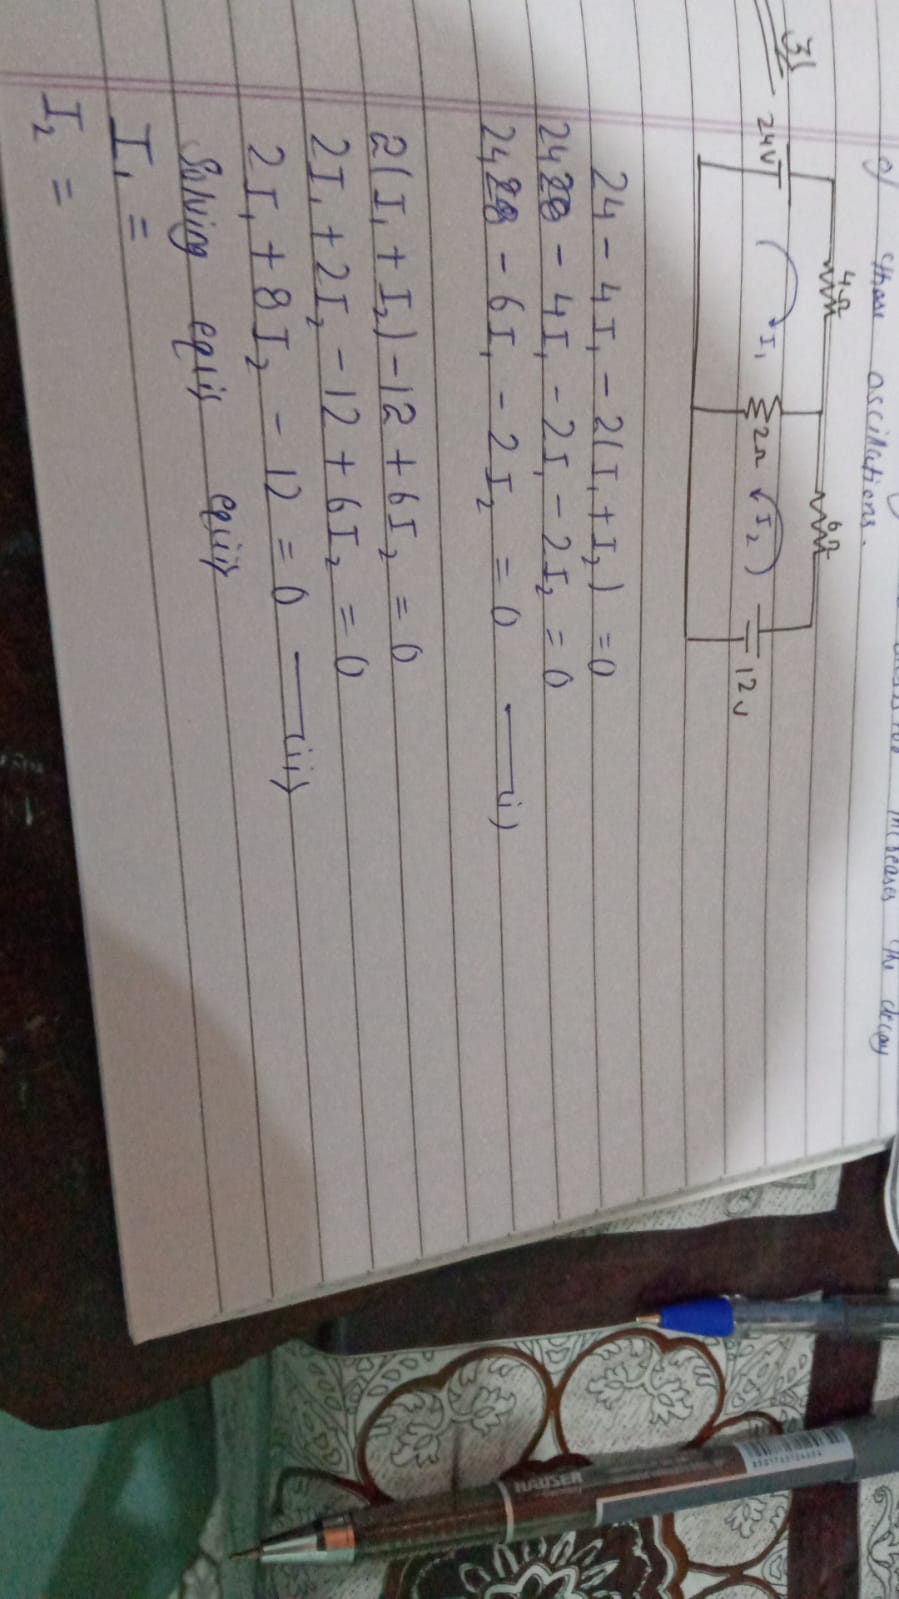 increases the decay
those oscillations.
3)
24V
4Ω
I₁
2Ω
I₂
6Ω
12V
24 - 4I₁ - 2(I₁+I₂) = 0
24 - 4I₁ - 2I₁ - 2I₂ = 0
24 - 6I₁ - 2I₂ = 0 —(i)
2(I₁ + I₂) - 12 + 6I₂ = 0
2I₁ + 2I₂ - 12 + 6I₂ = 0
2I₁ + 8I₂ - 12 = 0 —(ii)
Solving eqi) eqii)
I₁ =
I₂ =
HAUSER